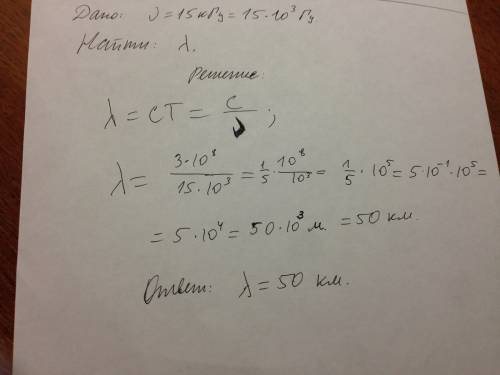 Дано: ν = 15 кГц = 15·10³ Гц.
Найти: λ.
Решение:
λ = cT = c/ν ;
λ = 3·10⁸/15·10³ = 1/5 · 10⁸/10³ = 1/5 · 10⁵ = 5·10⁻¹·10⁵ =
= 5·10⁴ = 50·10³ м. = 50 км.
Ответ: λ = 50 км.